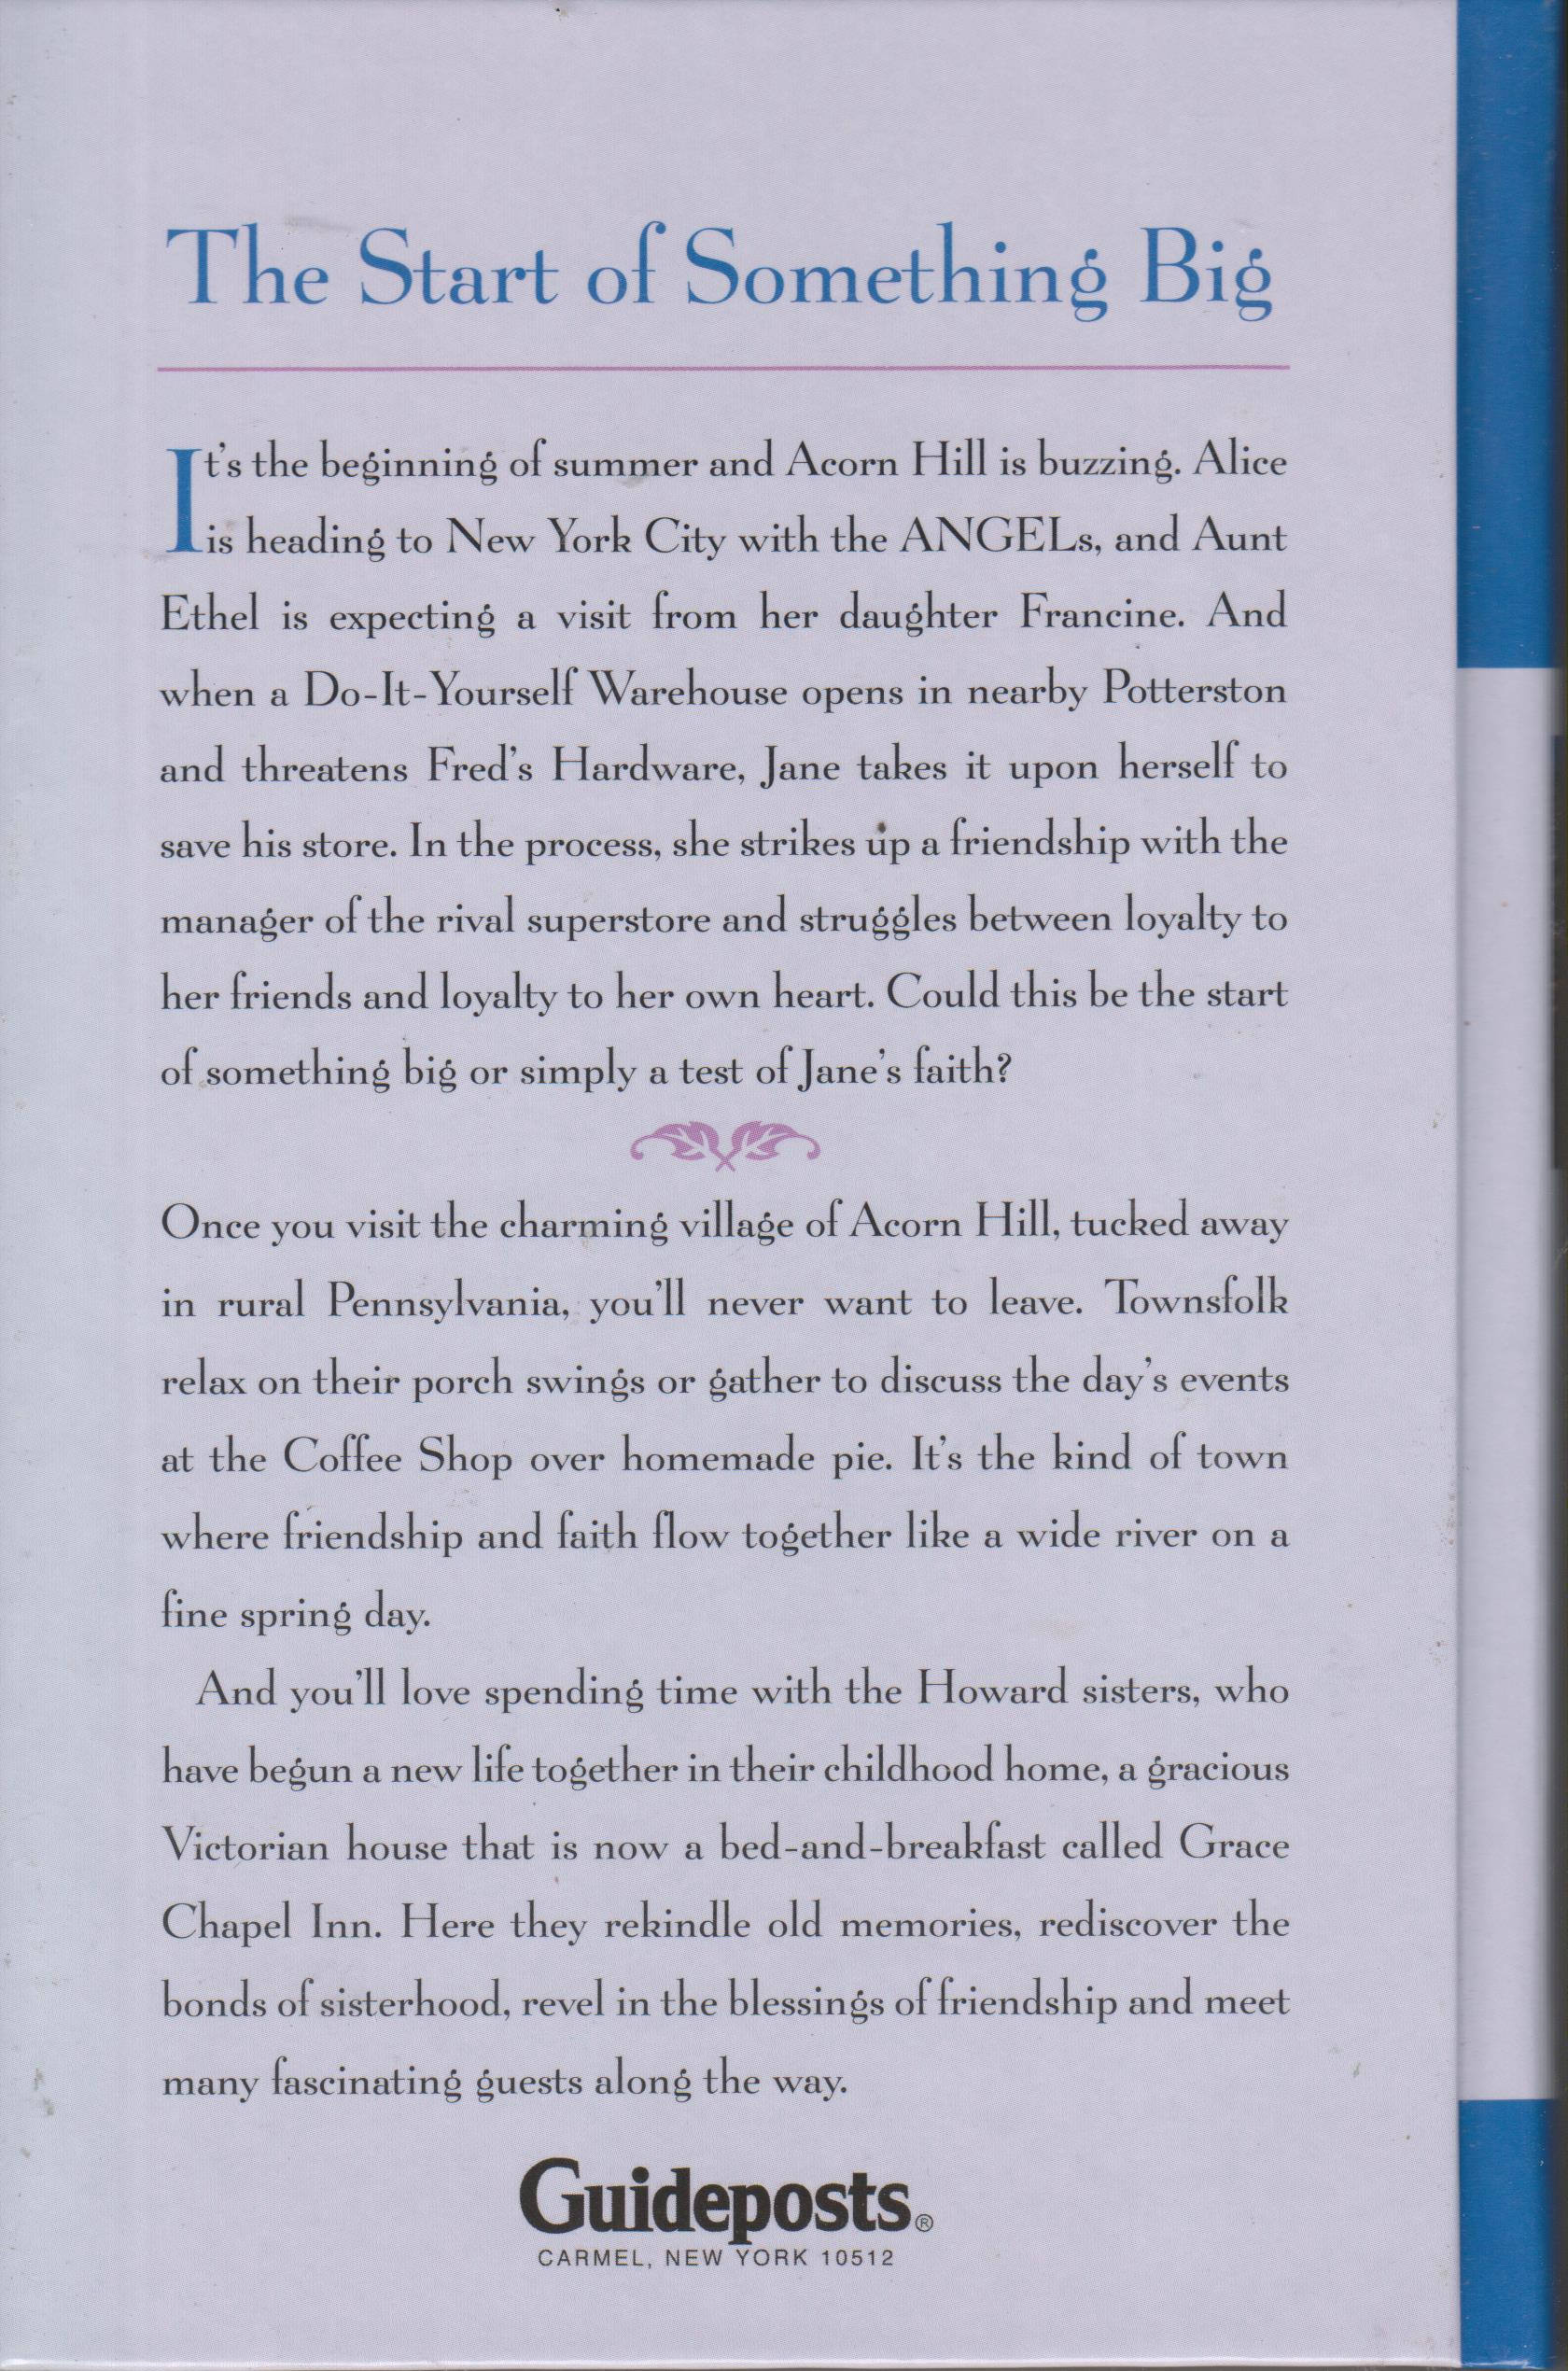 The Start of Something Big
It's the beginning of summer and Acorn Hill is buzzing. Alice
is heading to New York City with the ANGELs, and Aunt
Ethel is expecting a visit from her daughter Francine. And
when a Do-It-Yourself Warehouse opens in nearby Potterston
and threatens Fred's Hardware, Jane takes it upon herself to
save his store. In the process, she strikes up a friendship with the
manager of the rival superstore and struggles between loyalty to
her friends and loyalty to her own heart. Could this be the start
of something big or simply a test of Jane's faith?
Once you visit the charming village of Acorn Hill, tucked away
in rural Pennsylvania, you'll never want to leave. Townsfolk
relax on their porch swings or gather to discuss the day's events
at the Coffee Shop over homemade pie. It's the kind of town
where friendship and faith flow together like a wide river on a
fine spring day.
And you'll love spending time with the Howard sisters, who
have begun a new life together in their childhood home, a gracious
Victorian house that is now a bed-and-breakfast called Grace
Chapel Inn. Here they rekindle old memories, rediscover the
bonds of sisterhood, revel in the blessings of friendship and meet
many fascinating guests along the way.
Guideposts®
CARMEL, NEW YORK 10512